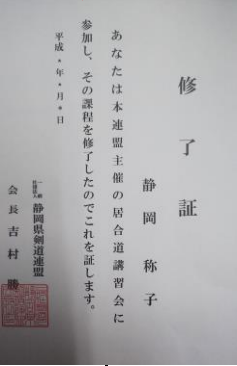 修了証
静岡 称子
あなたは本連盟主催の居合道講習会に
参加し、その課程を修了したのでこれを証します。
平成*年*月*日
一般社団法人 静岡県剣道連盟
会長 吉村 勝